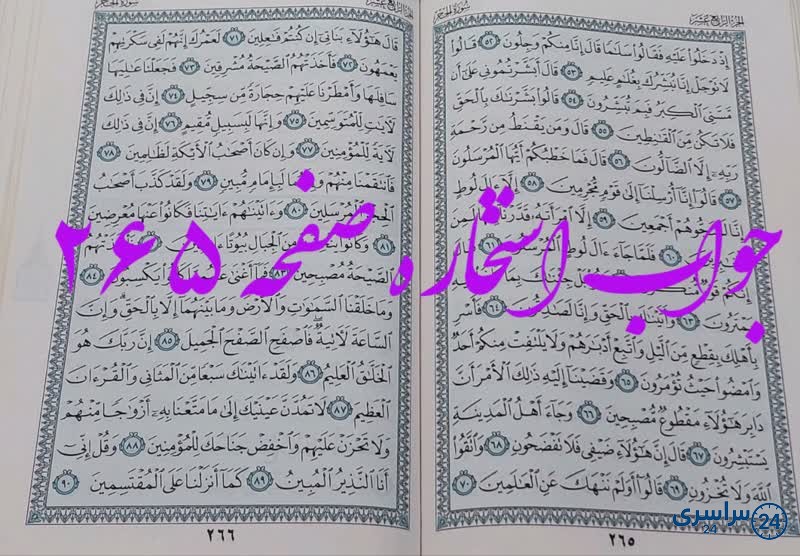 الجزء الرابع عشر
سورة الحجر
إِذْ دَخَلُوا عَلَيْهِ فَقَالُوا سَلَامًا قَالَ إِنَّا مِنكُمْ وَجِلُونَ ٥٢ قَالُوا
لَا تَوْجَلْ إِنَّا نُبَشِّرُكَ بِغُلَامٍ عَلِيمٍ ٥٣ قَالَ أَبَشَّرْتُمُونِي عَلَىٰ أَن
مَّسَّنِيَ الْكِبَرُ فَبِمَ تُبَشِّرُونَ ٥٤ قَالُوا بَشَّرْنَاكَ بِالْحَقِّ
فَلَا تَكُن مِّنَ الْقَانِطِينَ ٥٥ قَالَ وَمَن يَقْنَطُ مِن رَّحْمَةِ
رَبِّهِ إِلَّا الضَّالُّونَ ٥٦ قَالَ فَمَا خَطْبُكُمْ أَيُّهَا الْمُرْسَلُونَ
٥٧ قَالُوا إِنَّا أُرْسِلْنَا إِلَىٰ قَوْمٍ مُّجْرِمِينَ ٥٨ إِلَّا آلَ لُوطٍ
إِنَّا لَمُنَجُّوهُمْ أَجْمَعِينَ ٥٩ إِلَّا امْرَأَتَهُ قَدَّرْنَا لَمِنَ
٦٠ فَلَمَّا جَاءَ آلَ لُوطٍ الْمُرْسَلُونَ ٦١
إِنَّكُمْ قَوْمٌ
يَمْتَرُونَ ٦٣ وَأَتَيْنَاكَ بِالْحَقِّ وَإِنَّا لَصَادِقُونَ ٦٤ فَأَسْرِ
بِأَهْلِكَ بِقِطْعٍ مِّنَ اللَّيْلِ وَاتَّبِعْ أَدْبَارَهُمْ وَلَا يَلْتَفِتْ مِنكُمْ أَحَدٌ
وَامْضُوا حَيْثُ تُؤْمَرُونَ ٦٥ وَقَضَيْنَا إِلَيْهِ ذَٰلِكَ الْأَمْرَ أَنَّ
دَابِرَ هَٰؤُلَاءِ مَقْطُوعٌ مُّصْبِحِينَ ٦٦ وَجَاءَ أَهْلُ الْمَدِينَةِ
يَسْتَبْشِرُونَ ٦٧ قَالَ إِنَّ هَٰؤُلَاءِ ضَيْفِي فَلَا تَفْضَحُونِ ٦٨ وَاتَّقُوا
اللَّهَ وَلَا تُخْزُونِ ٦٩ قَالُوا أَوَلَمْ نَنْهَكَ عَنِ الْعَالَمِينَ ٧٠
٢٦٥
الجزء الرابع عشر
سورة الحجر
قَالَ هَٰؤُلَاءِ بَنَاتِي إِن كُنتُمْ فَاعِلِينَ ٧١ لَعَمْرُكَ إِنَّهُمْ لَفِي سَكْرَتِهِمْ
يَعْمَهُونَ ٧٢ فَأَخَذَتْهُمُ الصَّيْحَةُ مُشْرِقِينَ ٧٣ فَجَعَلْنَا عَالِيَهَا
سَافِلَهَا وَأَمْطَرْنَا عَلَيْهِمْ حِجَارَةً مِّن سِجِّيلٍ ٧٤ إِنَّ فِي ذَٰلِكَ
لَآيَاتٍ لِّلْمُتَوَسِّمِينَ ٧٥ وَإِنَّهَا لَبِسَبِيلٍ مُّقِيمٍ ٧٦ إِنَّ فِي ذَٰلِكَ
لَآيَةً لِّلْمُؤْمِنِينَ ٧٧ وَإِن كَانَ أَصْحَابُ الْأَيْكَةِ لَظَالِمِينَ ٧٨
فَانتَقَمْنَا مِنْهُمْ وَإِنَّهُمَا لَبِإِمَامٍ مُّبِينٍ ٧٩ وَلَقَدْ كَذَّبَ أَصْحَابُ
الْحِجْرِ الْمُرْسَلِينَ ٨٠ وَآتَيْنَاهُمْ آيَاتِنَا فَكَانُوا عَنْهَا مُعْرِضِينَ
٨١ وَكَانُوا يَنْحِتُونَ مِنَ الْجِبَالِ بُيُوتًا
الصَّيْحَةُ مُصْبِحِينَ ٨٣ فَمَا أَغْنَىٰ عَنْهُم مَّا كَانُوا يَكْسِبُونَ ٨٤
وَمَا خَلَقْنَا السَّمَاوَاتِ وَالْأَرْضَ وَمَا بَيْنَهُمَا إِلَّا بِالْحَقِّ وَإِنَّ
السَّاعَةَ لَآتِيَةٌ فَاصْفَحِ الصَّفْحَ الْجَمِيلَ ٨٥ إِنَّ رَبَّكَ هُوَ
الْخَلَّاقُ الْعَلِيمُ ٨٦ وَلَقَدْ آتَيْنَاكَ سَبْعًا مِّنَ الْمَثَانِي وَالْقُرْآنَ
الْعَظِيمَ ٨٧ لَا تَمُدَّنَّ عَيْنَيْكَ إِلَىٰ مَا مَتَّعْنَا بِهِ أَزْوَاجًا مِّنْهُمْ
وَلَا تَحْزَنْ عَلَيْهِمْ وَاخْفِضْ جَنَاحَكَ لِلْمُؤْمِنِينَ ٨٨ وَقُلْ إِنِّي
أَنَا النَّذِيرُ الْمُبِينُ ٨٩ كَمَا أَنزَلْنَا عَلَى الْمُقْتَسِمِينَ ٩٠
٢٦٦
جواب استخاره صفحه ۲۶۵
سراسری 24
24